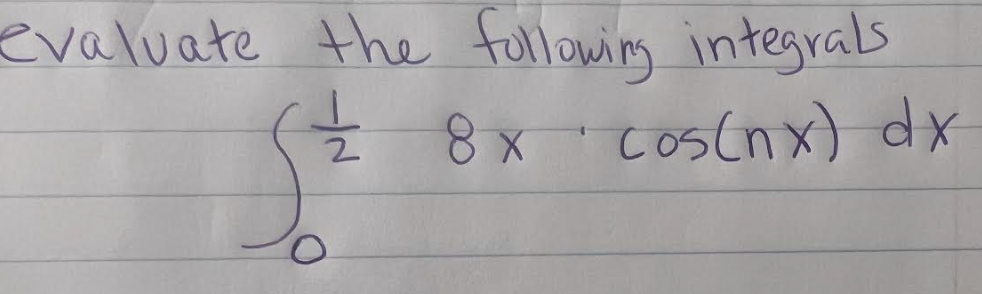 evaluate the following integrals
∫₀^½ 8x · cos(nx) dx